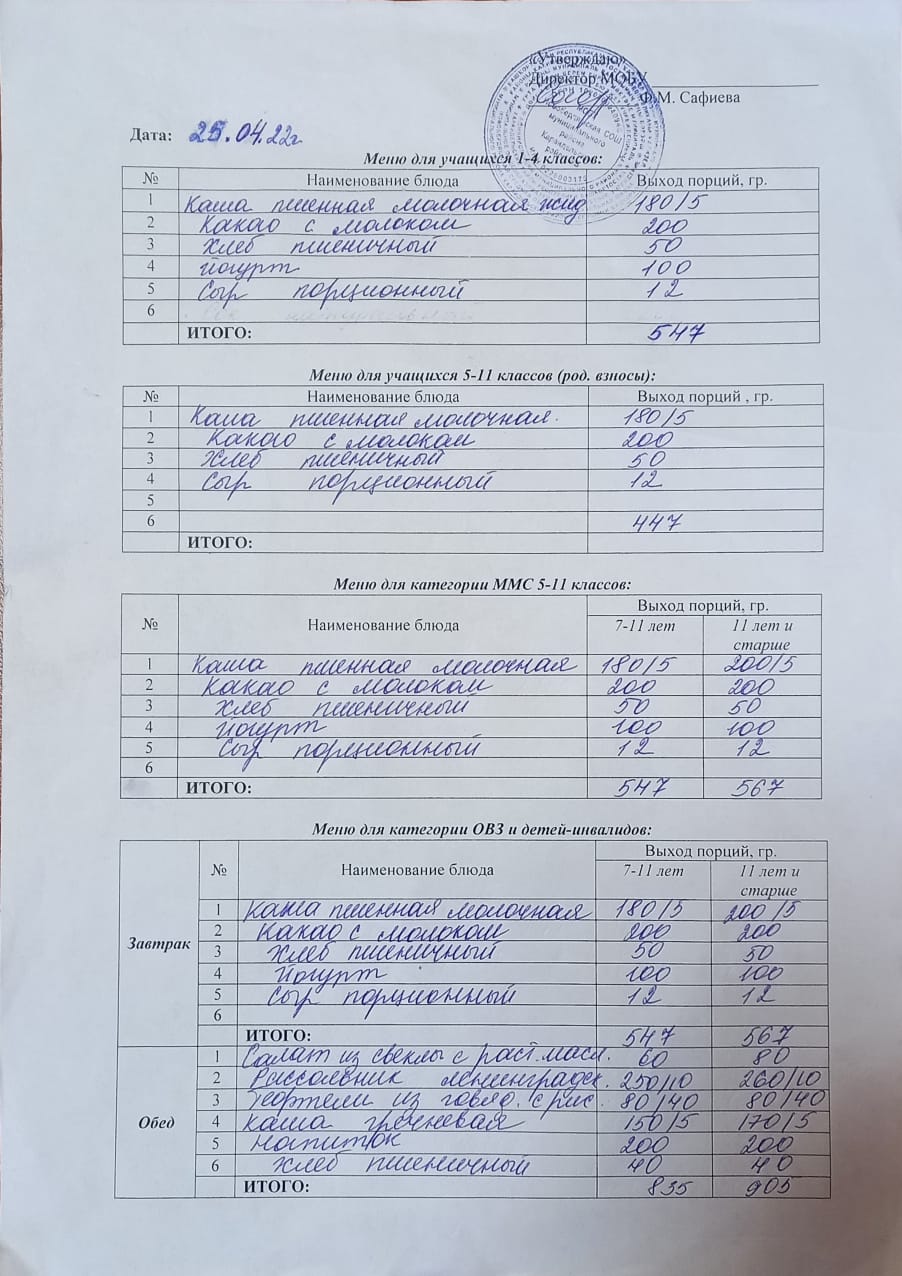 «Утверждаю»
Директор МОБУ
Ф.М. Сафиева
Дата: 25.04.22г
Меню для учащихся 1-4 классов:
№ Наименование блюда Выход порций, гр.
1 Каша пшенная молочная жид 180/5
2 Какао с молоком 200
3 Хлеб пшеничный 50
4 Йогурт 100
5 Сыр порционный 12
6
ИТОГО: 547
Меню для учащихся 5-11 классов (род. взносы):
№ Наименование блюда Выход порций , гр.
1 Каша пшенная молочная. 180/5
2 Какао с молоком 200
3 Хлеб пшеничный 50
4 Сыр порционный 12
5
6 447
ИТОГО:
Меню для категории ММС 5-11 классов:
№ Наименование блюда Выход порций, гр.
7-11 лет 11 лет и
старше
1 Каша пшенная молочная 180/5 200/5
2 Какао с молоком 200 200
3 Хлеб пшеничный 50 50
4 Йогурт 100 100
5 Сыр порционный 12 12
6
ИТОГО: 547 567
Меню для категории ОВЗ и детей-инвалидов:
№ Наименование блюда Выход порций, гр.
7-11 лет 11 лет и
старше
Завтрак
1 Каша пшенная молочная 180/5 200/5
2 Какао с молоком 200 200
3 Хлеб пшеничный 50 50
4 Йогурт 100 100
5 Сыр порционный 12 12
6
ИТОГО: 547 567
Обед
1 Салат из свеклы с раст. масл. 60 80
2 Рассольник ленинградск. 250/10 260/10
3 Тефтели из говяд. с рис. 80/40 80/40
4 Каша гречневая 150/5 170/5
5 Напиток 200 200
6 Хлеб пшеничный 40 40
ИТОГО: 835 905